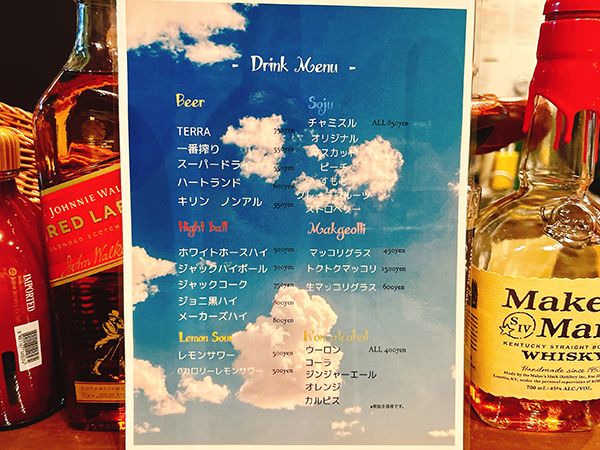 - Drink Menu -
Beer
TERRA 750yen
一番搾り 550yen
スーパードライ 550yen
ハートランド 600yen
キリン ノンアル 550yen
Hight ball
ホワイトホースハイ 500yen
ジャックハイボール 700yen
ジャックコーク 750yen
ジョニ黒ハイ 800yen
メーカーズハイ 800yen
Lemon Sour
レモンサワー 500yen
0カロリーレモンサワー 500yen
Soju
チャミスル ALL 850yen
オリジナル
マスカット
ピーチ
すもも
グレープフルーツ
ストロベリー
Makgeolli
マッコリグラス 450yen
トクトクマッコリ 1500yen
生マッコリグラス 600yen
Non alcohol
ウーロン ALL 400yen
コーラ
ジンジャーエール
オレンジ
カルピス
※税抜き価格です。
JOHNNIE WAL
RED LAB
BLENDED SCOTCH
John Walk
IMPORTED
Make
Ma
SIV
KENTUCKY STRAIGHT BO
WHISKY
Handmade since
700 mL-45% ALC/VOL